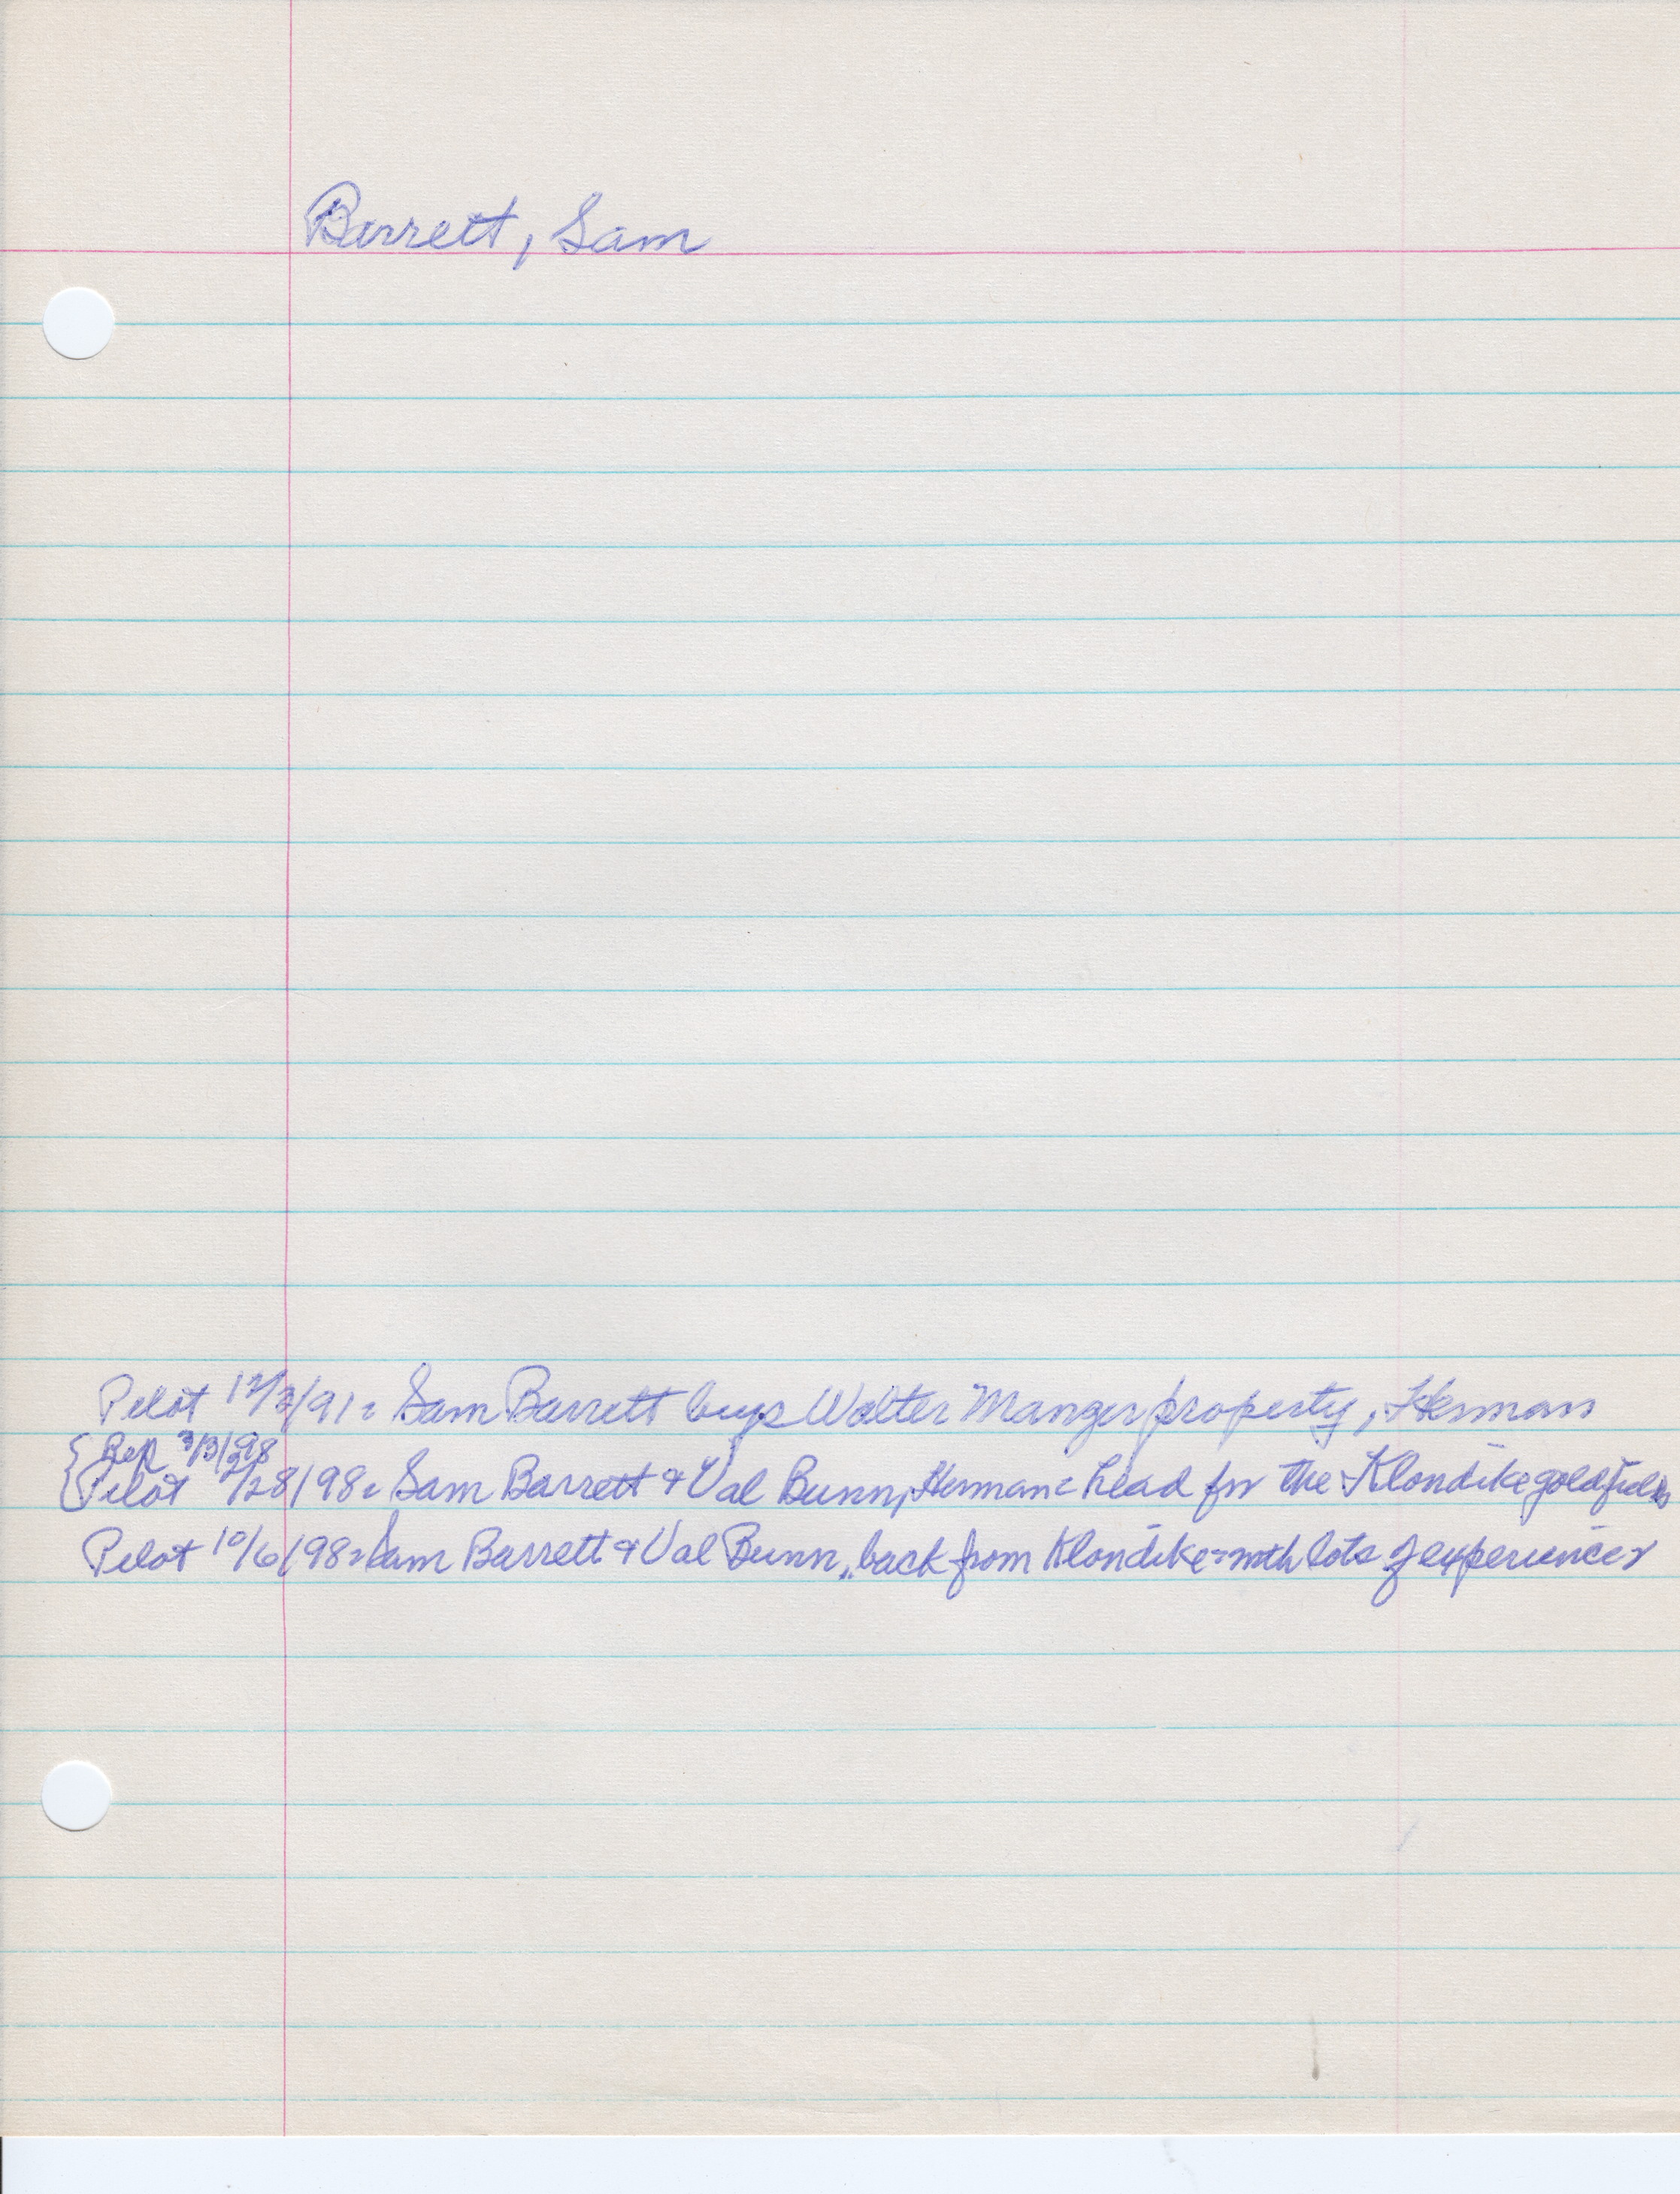 Barrett, Sam
Pilot 12/3/91: Sam Barrett buys Walter Manger property, Herman
{ Rep 3/3/98
{ Pilot 2/28/98: Sam Barrett & Val Bunn, Herman = head for the Klondike goldfields
Pilot 10/6/98: Sam Barrett & Val Bunn, back from Klondike = with lots of experiences